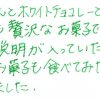 んとホワイトチョコレー
も贅沢なお菓子で
説明が入っていた
お菓子も食べてみた
ました.